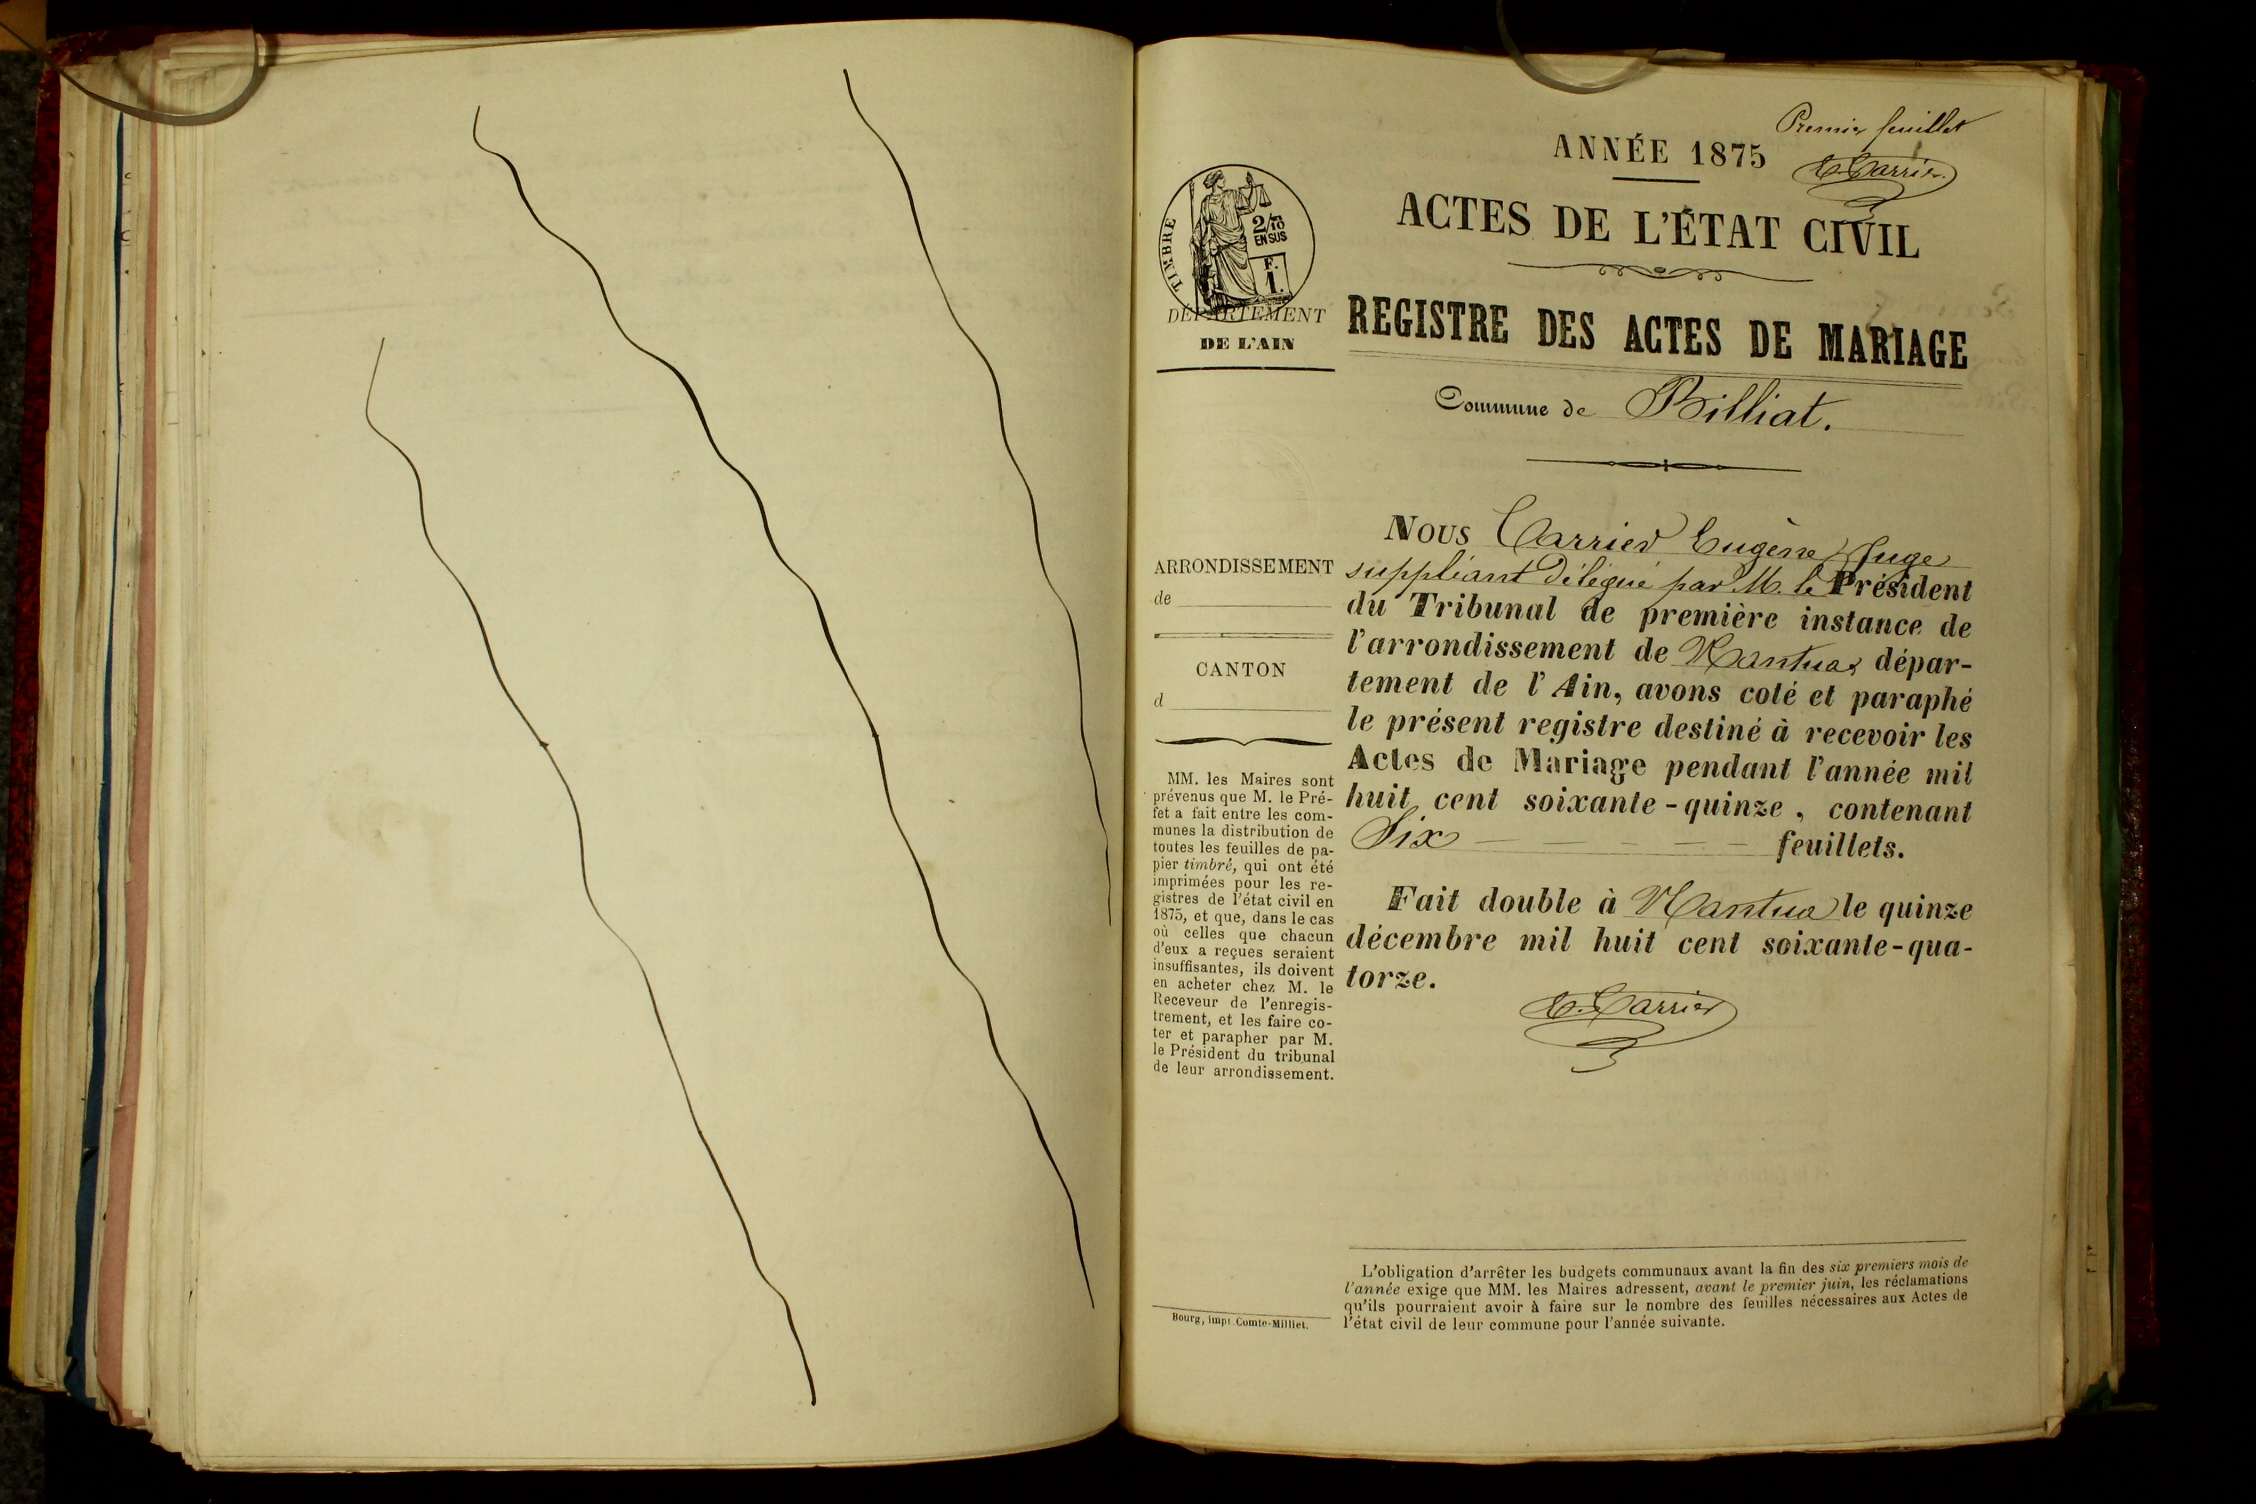 Premier feuillet
ANNÉE 1875
E. Carrier
ACTES DE L'ÉTAT CIVIL
TIMBRE
2/10
EN SUS
F.
1.
DÉPARTEMENT
DE L'AIN
REGISTRE DES ACTES DE MARIAGE
Commune de Billiat.
ARRONDISSEMENT
de
CANTON
d
MM. les Maires sont
prévenus que M. le Pré-
fet a fait entre les com-
munes la distribution de
toutes les feuilles de pa-
pier timbré, qui ont été
imprimées pour les re-
gistres de l'état civil en
1875, et que, dans le cas
où celles que chacun
d'eux a reçues seraient
insuffisantes, ils doivent
en acheter chez M. le
Receveur de l'enregis-
trement, et les faire co-
ter et parapher par M.
le Président du tribunal
de leur arrondissement.
Bourg, impr. Comte-Milliet.
NOUS Carrier Eugène Juge
suppléant délégué par M. le Président
du Tribunal de première instance de
l'arrondissement de Nantua, dépar-
tement de l'Ain, avons coté et paraphé
le présent registre destiné à recevoir les
Actes de Mariage pendant l'année mil
huit cent soixante-quinze, contenant
Six — — — — — feuillets.
Fait double à Nantua le quinze
décembre mil huit cent soixante-qua-
torze.
E. Carrier
L'obligation d'arrêter les budgets communaux avant la fin des six premiers mois de
l'année exige que MM. les Maires adressent, avant le premier juin, les réclamations
qu'ils pourraient avoir à faire sur le nombre des feuilles nécessaires aux Actes de
l'état civil de leur commune pour l'année suivante.